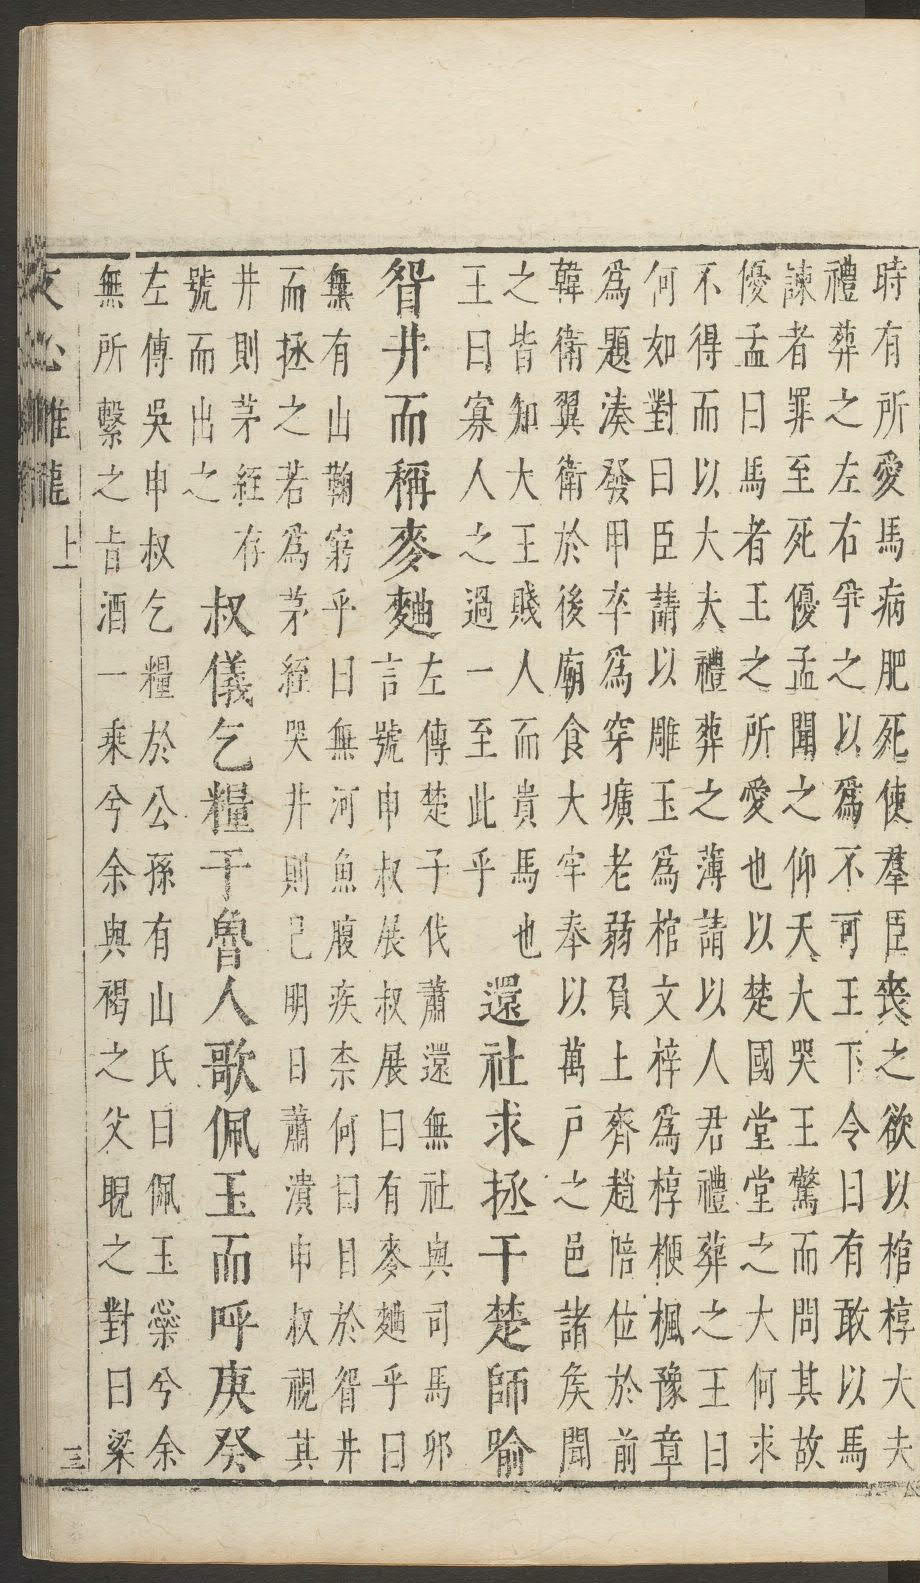 時有所愛馬病肥死使羣臣喪之欲以棺椁大夫
禮葬之左右爭之以爲不可王下令曰有敢以馬
諫者罪至死優孟聞之仰天大哭王驚而問其故
優孟曰馬者王之所愛也以楚國堂堂之大何求
不得而以大夫禮葬之薄請以人君禮葬之王曰
何如對曰臣請以雕玉爲棺文梓爲椁楩楓豫章
爲題湊發甲卒爲穿壙老弱負土齊趙陪位於前
韓衛翼衛於後廟食大牢奉以萬戶之邑諸矦聞
之皆知大王賤人而貴馬也
王曰寡人之過一至此乎
還社求拯干楚師喻
眢井而稱麥麯
左傳楚子伐蕭還無社與司馬卯
言號申叔展叔展曰有麥麯乎曰
無有山鞠窮乎曰無河魚腹疾柰何曰目於眢井
而拯之若爲茅絰哭井則己明日蕭潰申叔視其
井則茅絰存
號而出之
叔儀乞糧干魯人歌佩玉而呼庚癸
左傳吳申叔乞糧於公孫有山氏曰佩玉橤兮余
無所繫之旨酒一乘兮余與褐之父睨之對曰梁
文心雕龍 上 三